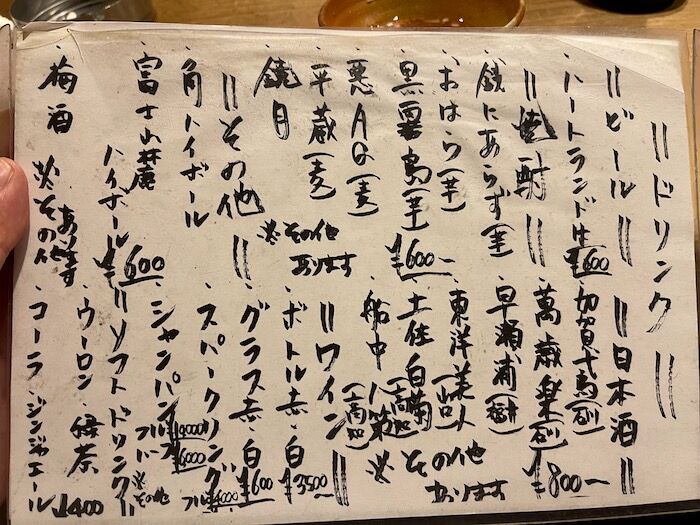 〃ドリンク〃
〃ビール〃
・ハートランド生 ¥600
〃焼酎〃
・銕にあらず(芋)
・おはら(芋)
・黒霧島(芋) ¥600〜
・悪AQ(麦)
・平蔵(麦)
・鏡月
※その他あります
〃その他〃
・角ハイボール
・富士山麓ハイボール ¥600
・梅酒
※その他あります
〃日本酒〃
・加賀千鳥(石川)
・萬歳楽(石川) ¥800〜
・早瀬浦(福井)
・東洋美人(山口)
・土佐白菊(高知)
・船中八策(高知)
※その他あります
〃ワイン〃
・ボトル赤・白 ¥3500〜
・グラス赤・白 ¥600
・スパークリング フル¥4000
・シャンパン フル¥10000 ハーフ¥6000
※その他
〃ソフトドリンク〃
・ウーロン・緑茶
・コーラ・ジンジャエール ¥400